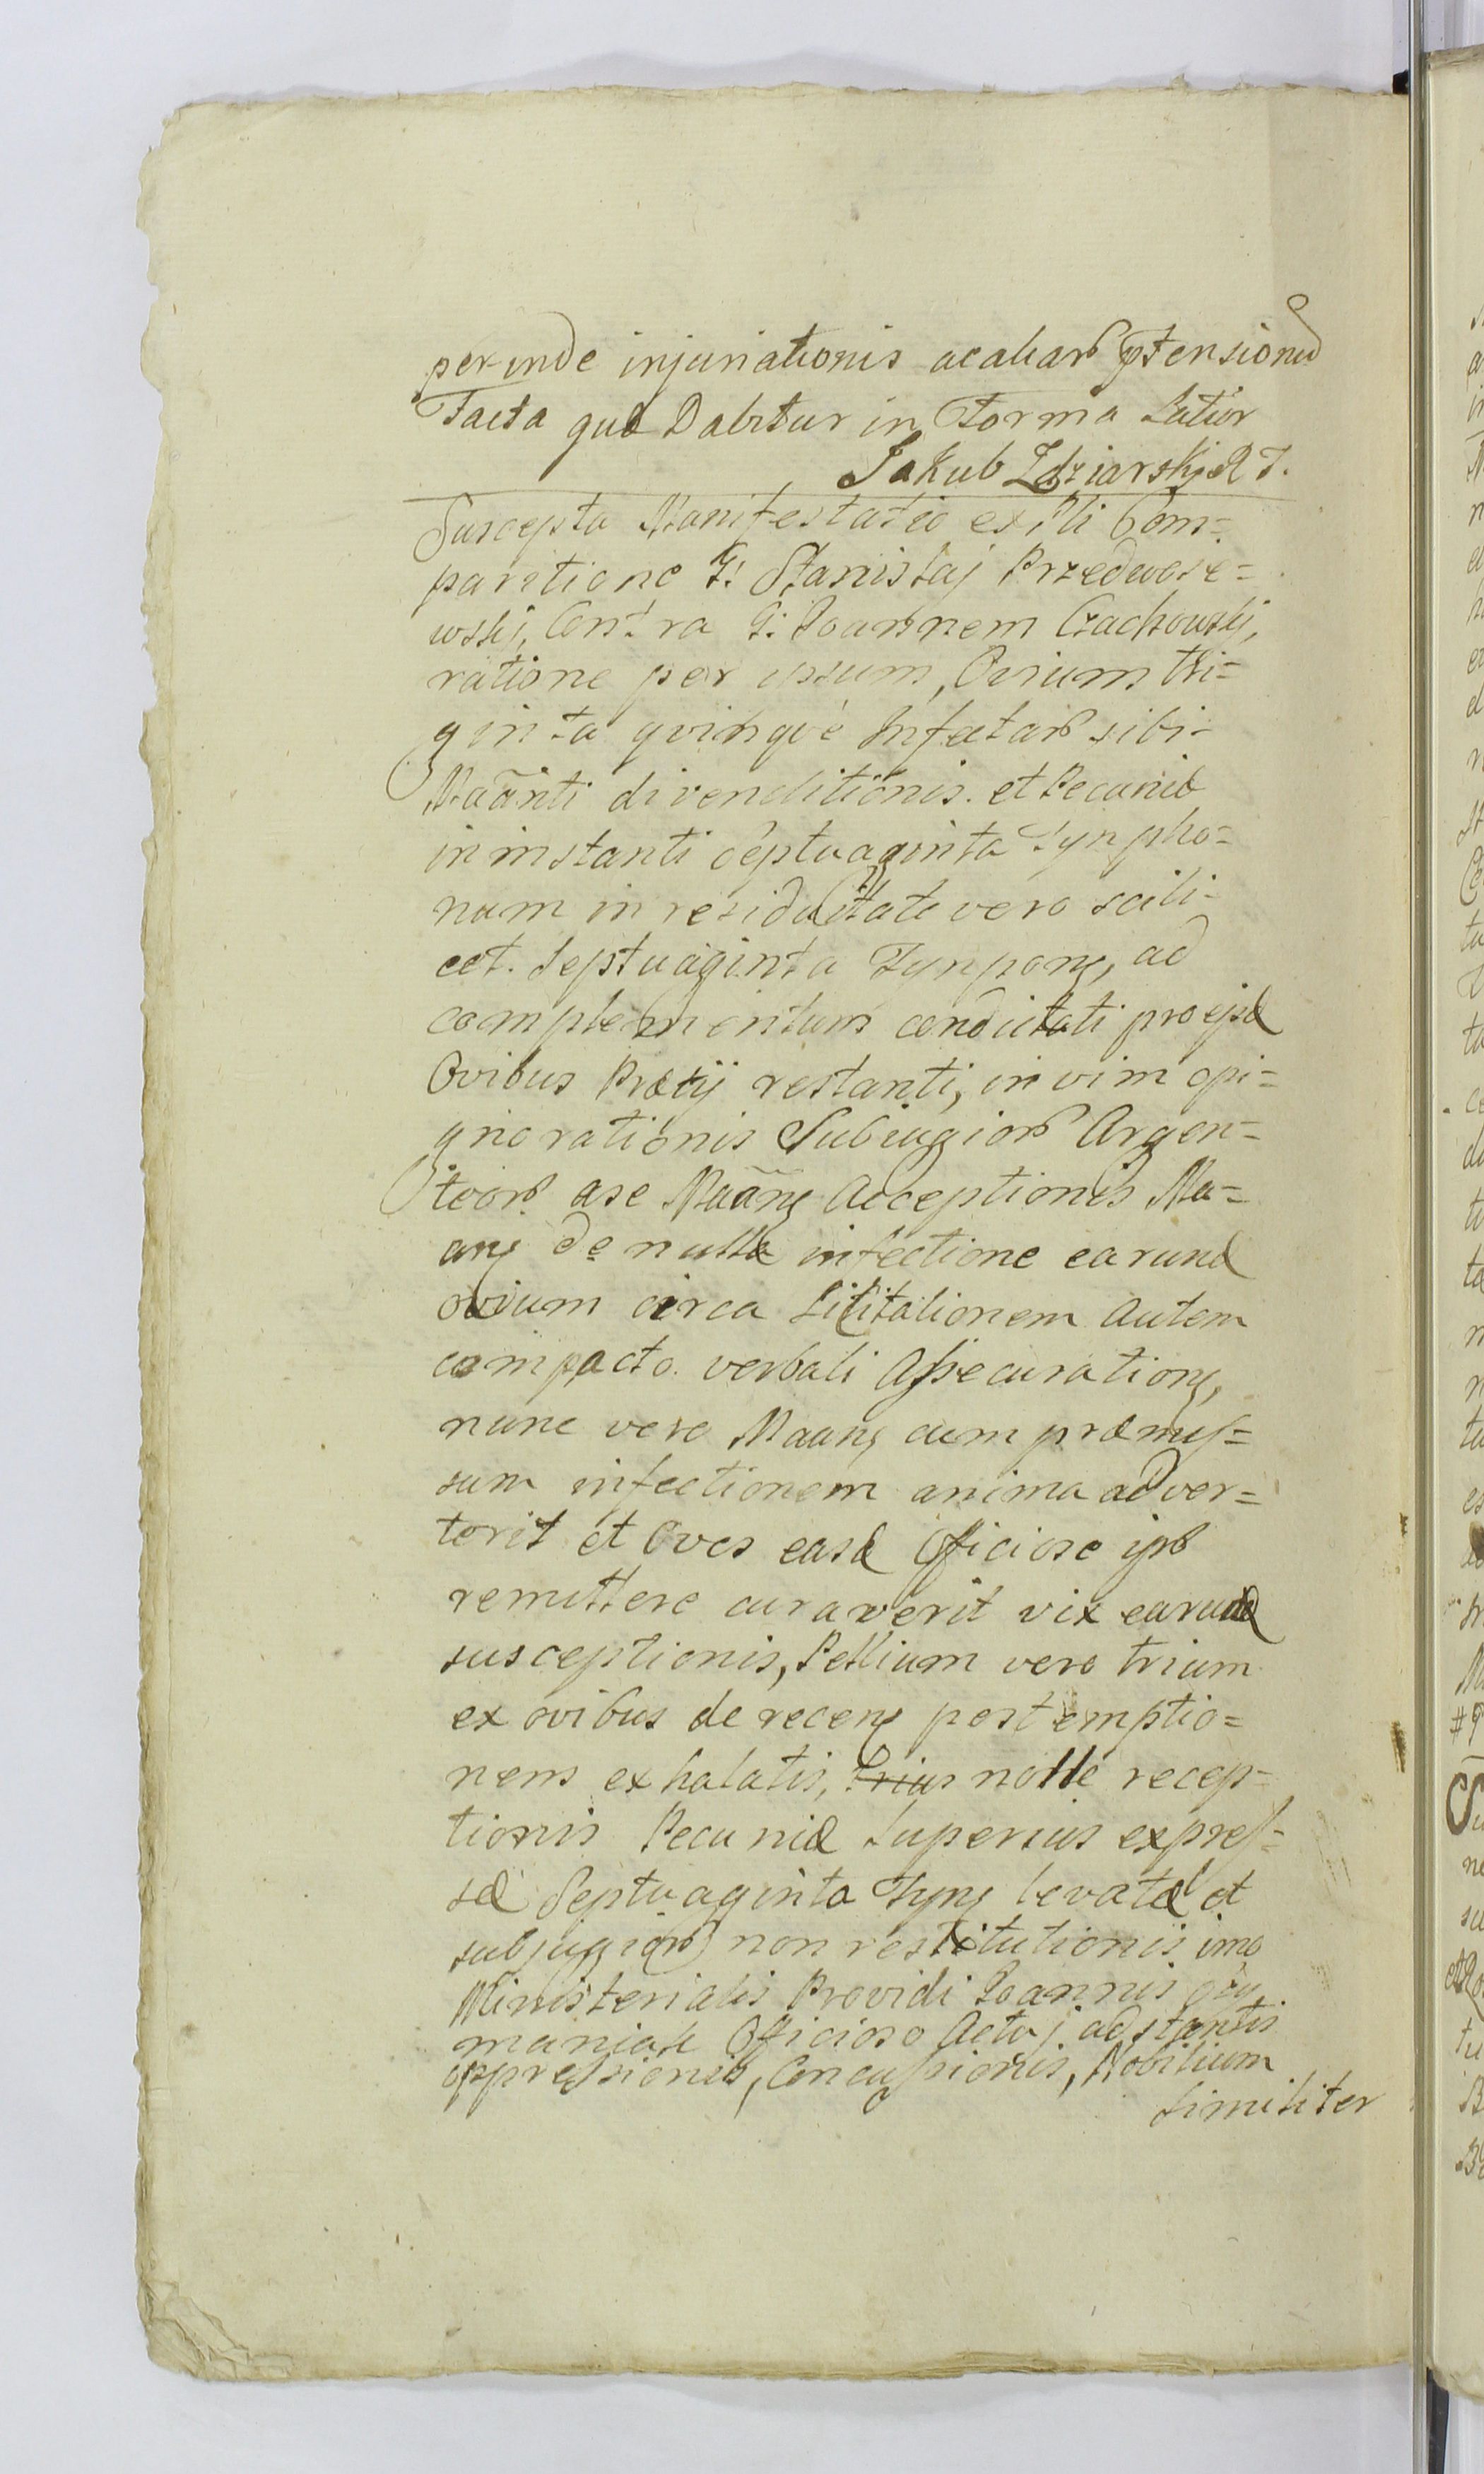 perinde injuriationis acaliarb ptensionũ
Facta quæ Dabitur in Forma Latior
Jakub Zdziarski R T.
Suscepta Manifestatio ex Pti Com=
paritione G: Stanislaj Przedwoie=
wski, Contra G: Joannem Czachowskj,
ratione per ipsum, Ovium tri=
ginta qvinqve Infectarb sibi-
Maãnti divenditionis. et Pecuniæ
in instanti septuaginta Tynpho=
num in residuitate vero scili-
cet. Septuaginta Tynpong, ad
complementum condictati pro ejsd
Ovibus Prætij restanti, in vim opi=
gnorationis Subiugiorb Argen=
teorb ase Maãng Acceptionis Ma=
ang de nulla infectione earund
ovium circa Licitationem autem
compacto. verbali Assecurationg,
nunc vero Maang cum præmis=
sam infectionem anima adver=
terit et Oves easd Officiose ipsb
remittere curaverit vix earund
susceptionis, Pellium vero trium
ex ovibus de receng post emptio=
nem exhalatis, trius nolle recep=
tionis Pecuniæ Superius expres=
sæ Septuaginta Tyng levatæ et
subjugiorb non restitutionis imo
Ministerialis Providi Joannis
Officioso Actuj adstantis
oppressionis, Concussionis, Nobilium
Similiter